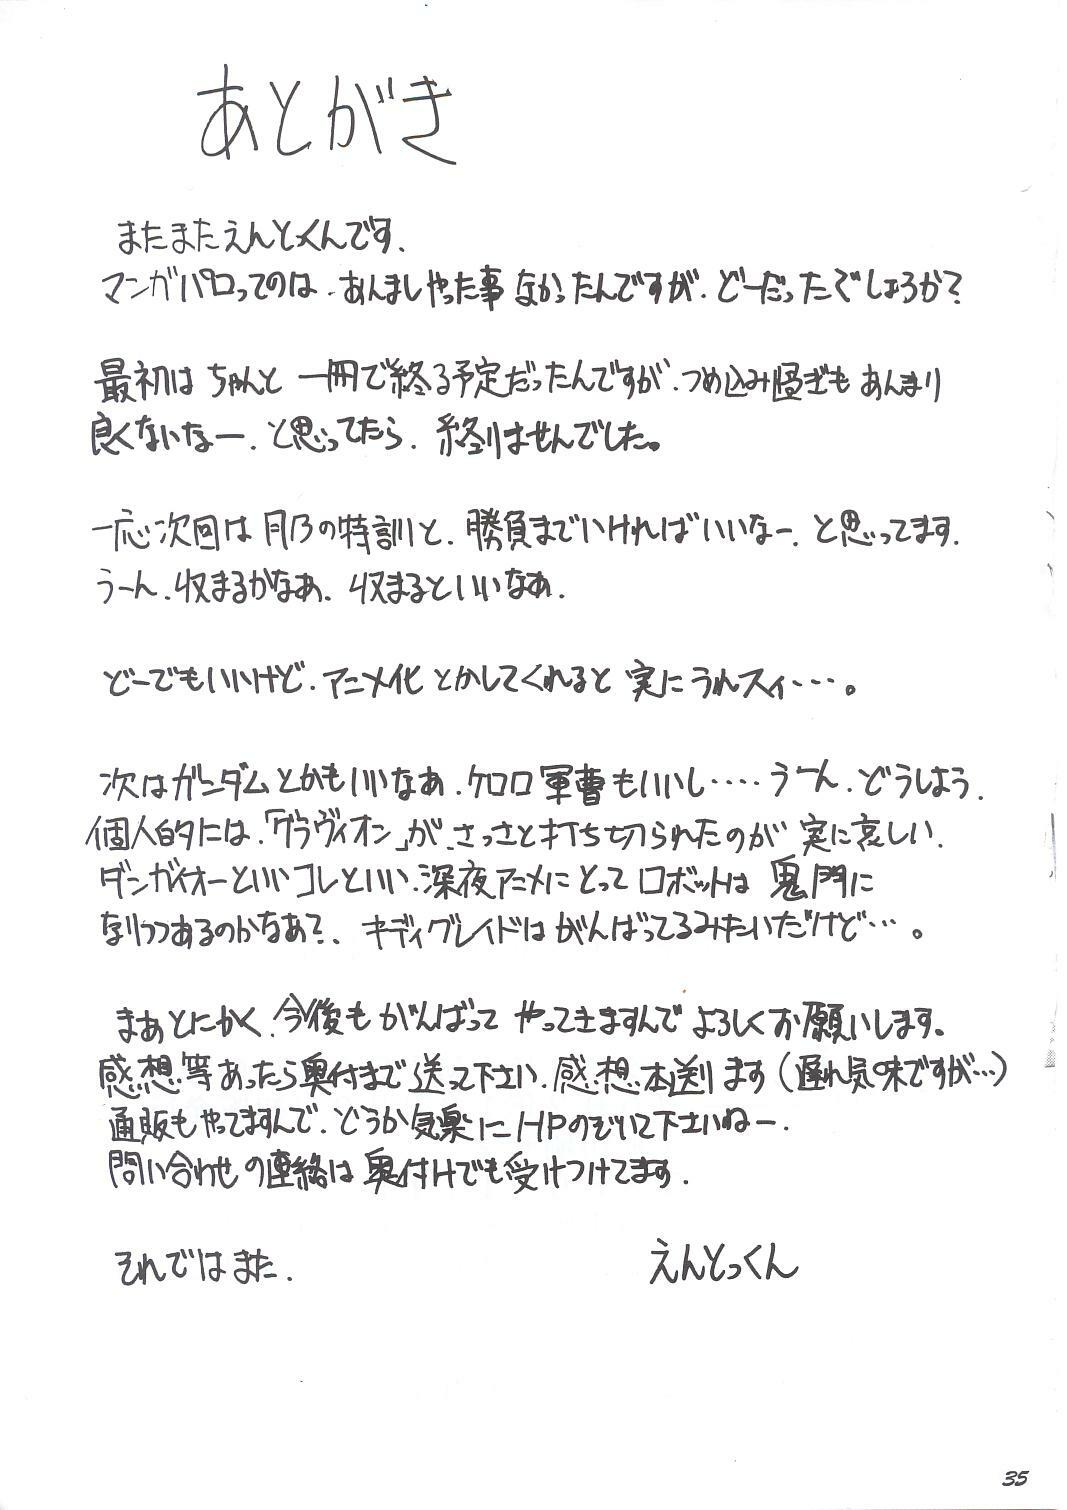 あとがき
またまたえんとっくんです.
マンガパロってのは.あんましやった事なかったんですが.どーだったでしょうか?
最初はちゃんと一冊で終る予定だったんですが.つめ込み過ぎもあんまり
良くないなー.と思ってたら.終りませんでした。
一応次回は月乃の特訓と.勝負までいければいいなー.と思ってます.
うーん.収まるかなあ.収まるといいなあ.
どーでもいいけど.アニメ化とかしてくれると実にうれスィ…。
次はガンダムとかもいいなあ.ケロロ軍曹もいいし….うーん.どうしよう.
個人的には.「グラヴィオン」が.さっさと打ち切られたのが実に哀しい.
ダンガイオーといいコレといい.深夜アニメにとってロボットは鬼門に
なりつつあるのかなあ?.キディグレイドはがんばってるみたいだけど…。
まあとにかく.今後もがんばってやってきますんでよろしくお願いします。
感想等あったら奥付まで送って下さい.感想本送ります(遅れ気味ですが…)
通販もやってますんで.どうか気楽にHPのぞいて下さいねー.
問い合わせの連絡は奥付けでも受けつけてます.
それではまた. えんとっくん
35